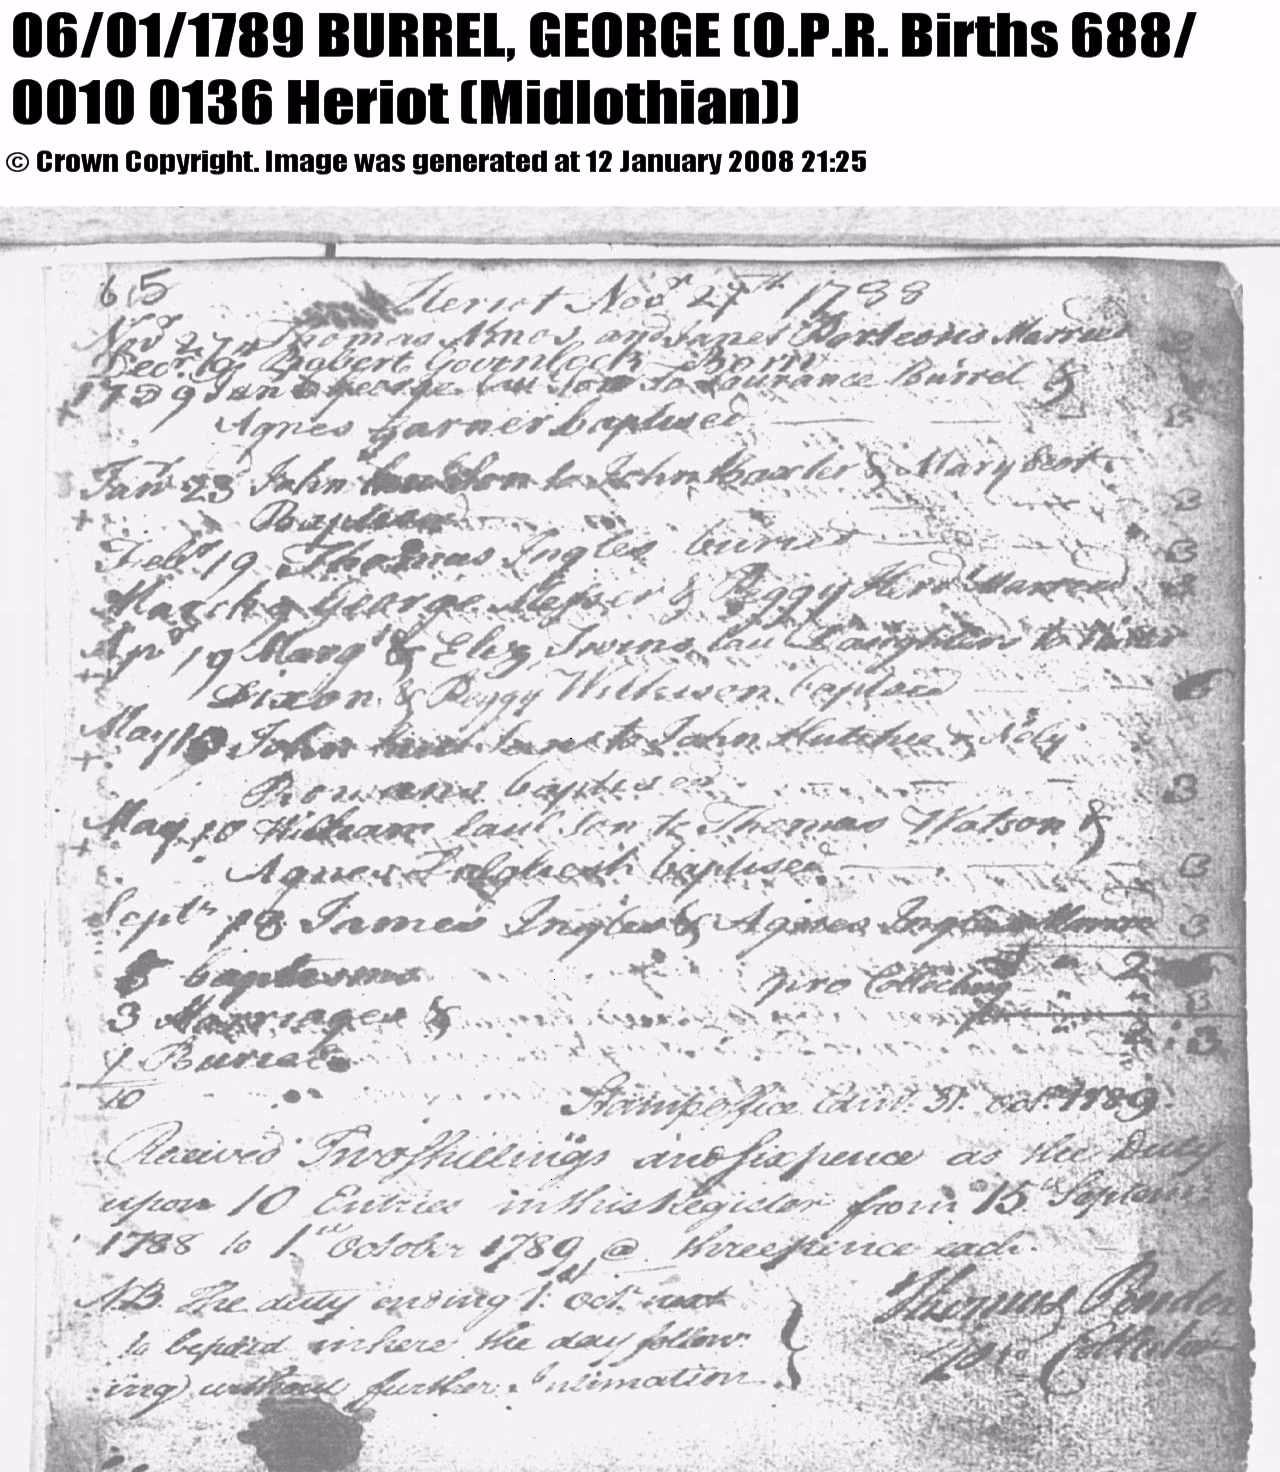 06/01/1789 BURREL, GEORGE (O.P.R. Births 688/
0010 0136 Heriot (Midlothian))
© Crown Copyright. Image was generated at 12 January 2008 21:25
615
Heriot Novr 27th 1788
Novr 27th Thomas Amos and Janet Porteous Married 3
Decr Robert Govenlock Born
1789 Jan 6 George law Son to Laurance Burrel &
Agnes garner baptised 3
Janr 23 John law Son to John Baxter & Mary
Baptised 3
Febr 19 Thomas Ingles buried 3
March George Messer & Peggy Herd Married 3
Apr 19 Margt & Eliz Twins law Daughters to
Dixon & Peggy Wilkieson baptised 6
May 10 John law Sone to John Hutchie & Nely
Rowans baptised 3
May 10 William laul son to Thomas Watson &
Agnes Dalgliesh baptised 3
Septr 18 James Ingles & Agnes Ingles 3
6 baptisms 2 6
pro Collecting 3
3 Marriages &
1 Burial 2 : 3
10
Stampoffice Edinr 31 octr 1789
Received Two Shillings and Sixpence as the Duty
upon 10 Entries in this Register from 15th Septemr
1788 to 1st October 1789 @ threepence each
NB. The duty ending 1st octr next
Thomas Ponder
to be paid in here the day follow
pro Collector
ing without further Intimation